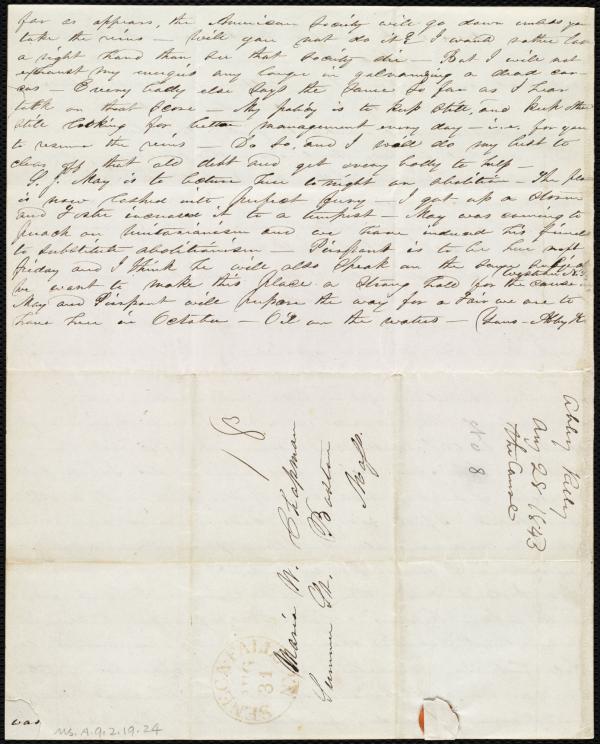 far as appears, the American Society will go down unless you
take the reins — Will you not do it? I would rather lose
a right hand than see that Society die — But I will not
exhaust my energies any longer in galvanizing a dead car-
cas — Every body else says the same so far as I hear
talk on that score — My policy is to keep still, and keep others
still looking for better management every day — i.e. for you
to resume the reins — Do so, and I will do my best to
clear off that old debt and get every body to help —
S. J. May is to lecture here to night on abolition — The place
is now lashed into perfect fury — I got up a storm
and Foster increased it to a tempest — May was coming to
preach on Unitarianism and we have induced his friends
to substitute abolitionism — Pierpont is to be here next
friday and I think he will also speak on the same subject
we want to make this place a strong hold for the cause in western N.Y.
May and Pierpont will prepare the way for a Fair we are to
have here in October — Oil on the waters — Yours — Abby K
18
Maria W. Chapman
Summer St. Boston
Mass.
SENECA FALLS
AUG
31
N.Y.
Abby Kelly
Aug 28 1843
The Cause
No 8
was
Ms. A. 9. 2. 19. 24